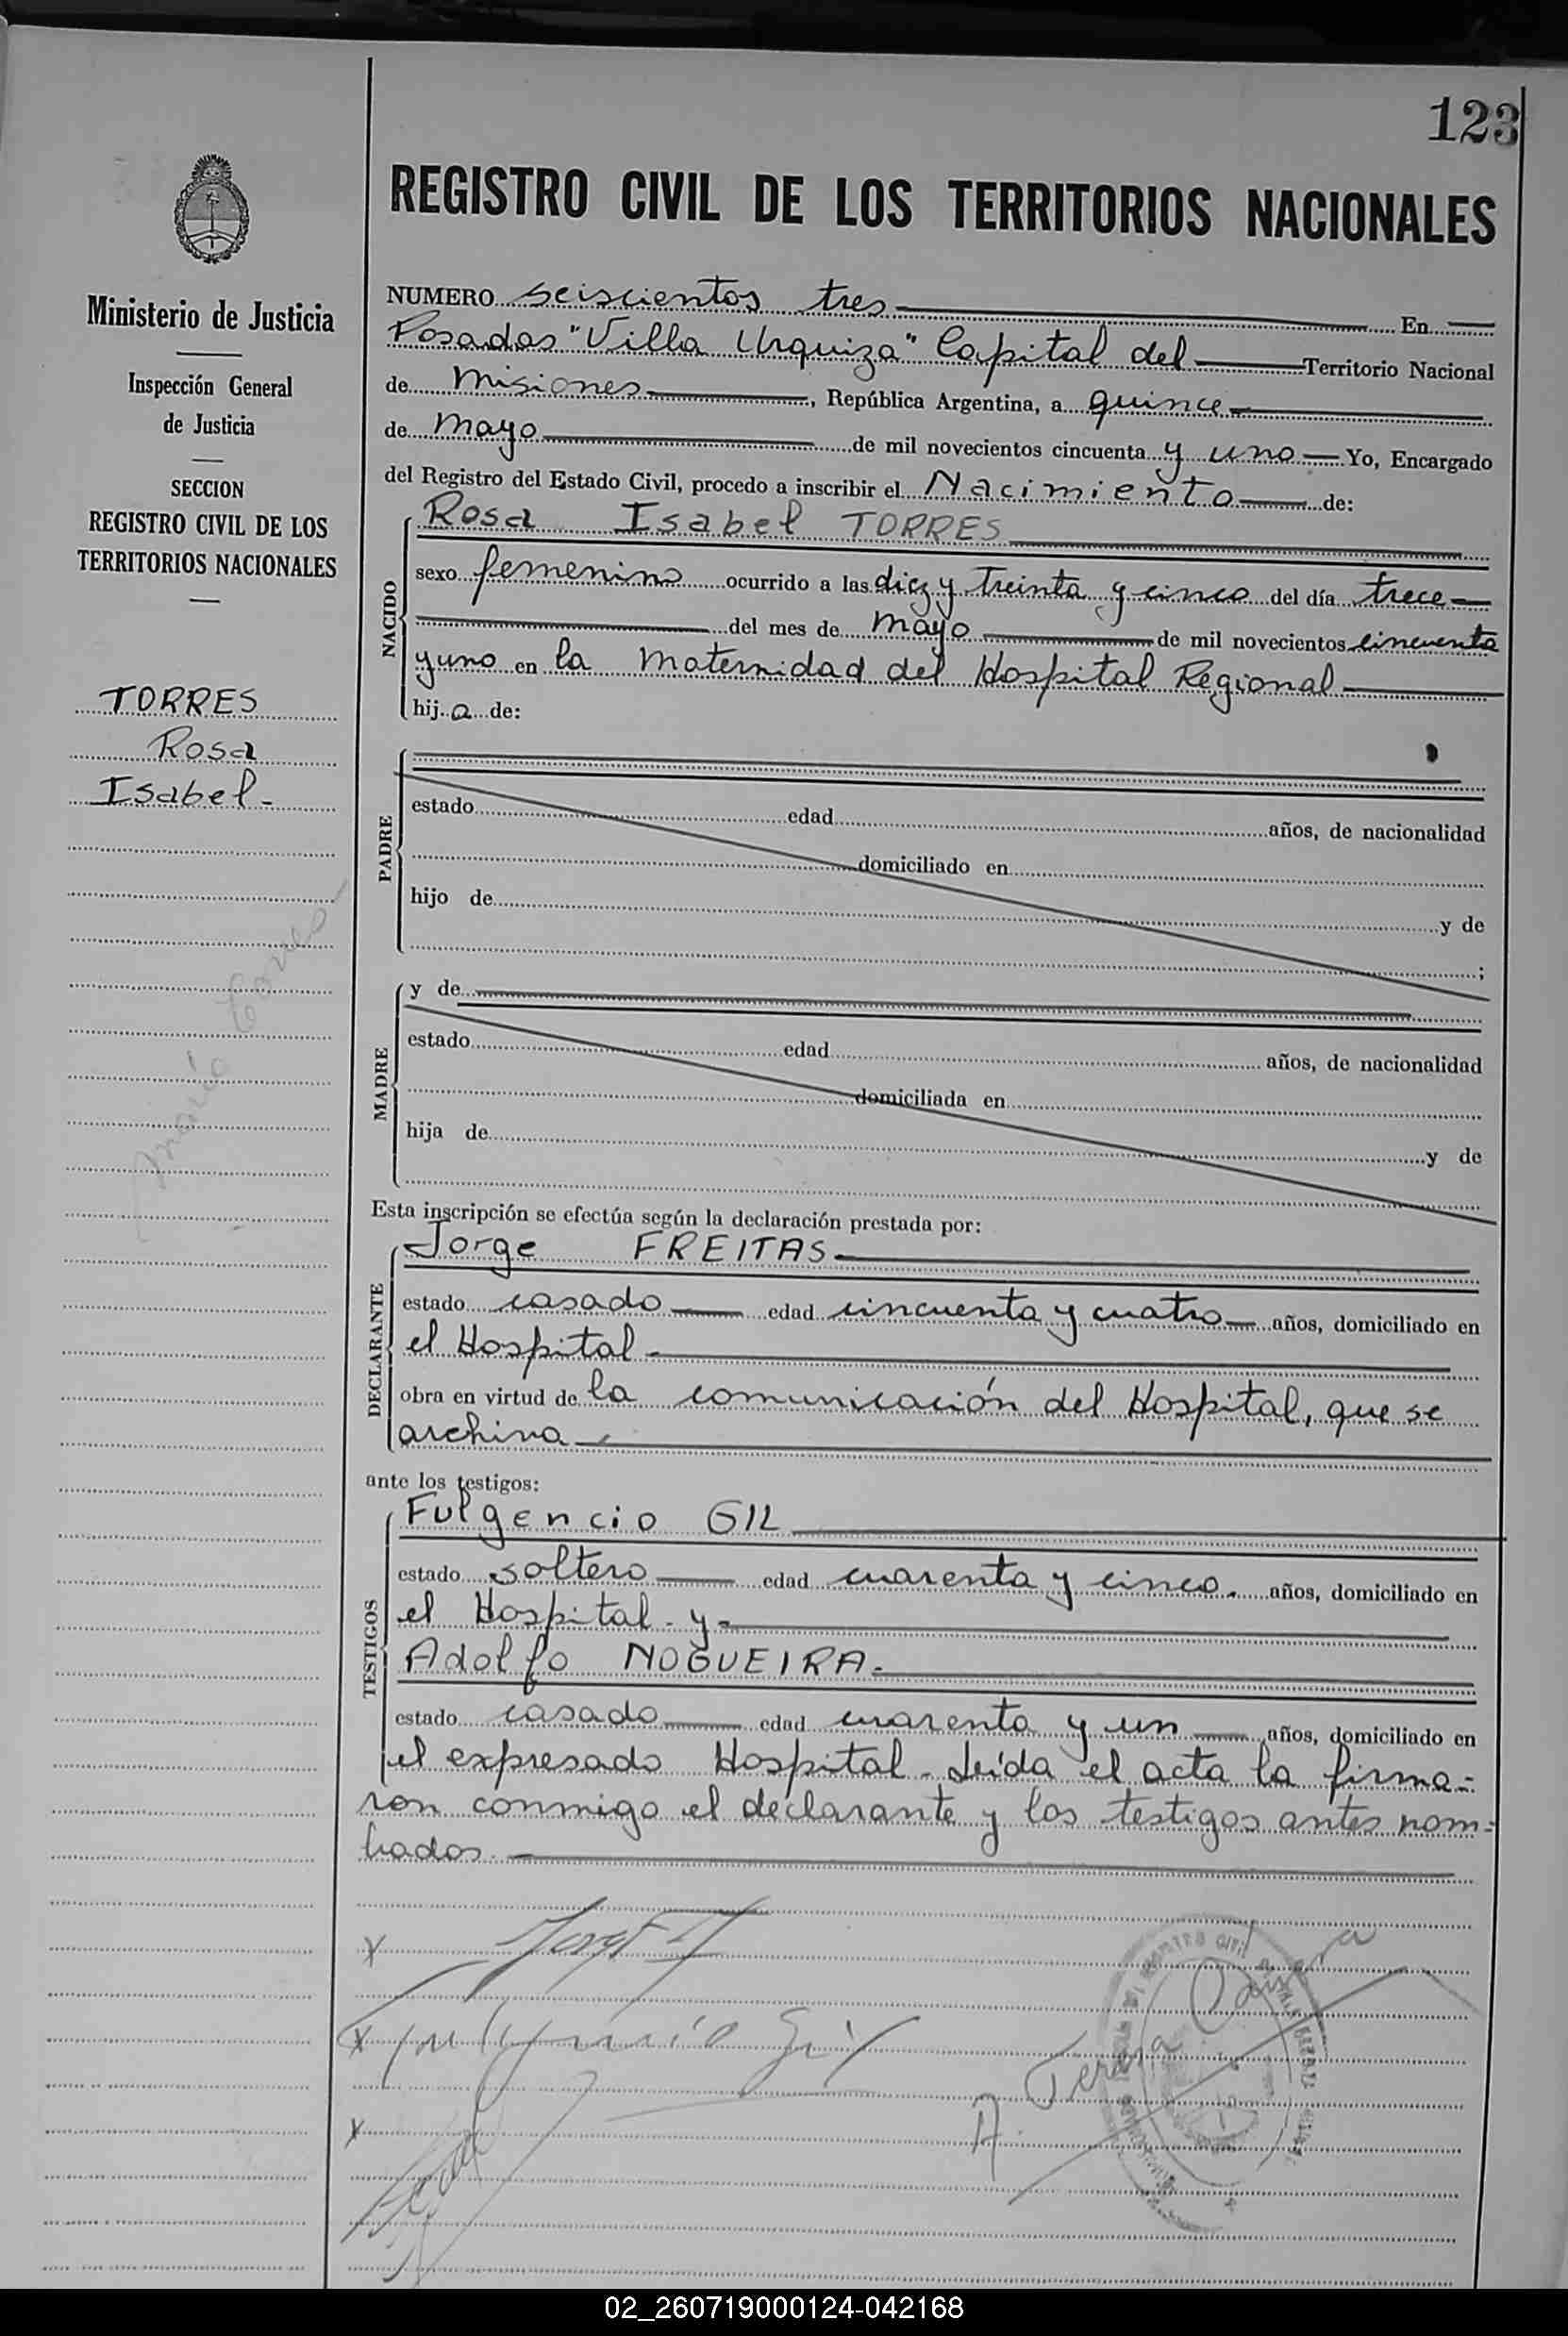 123
REGISTRO CIVIL DE LOS TERRITORIOS NACIONALES
Ministerio de Justicia
Inspección General
de Justicia
SECCION
REGISTRO CIVIL DE LOS
TERRITORIOS NACIONALES
TORRES
Rosa
Isabel-
NUMERO seiscientos tres En
Posadas "Villa Urquiza" Capital del Territorio Nacional
de Misiones, República Argentina, a quince
de mayo de mil novecientos cincuenta y uno Yo, Encargado
del Registro del Estado Civil, procedo a inscribir el Nacimiento de:
NACIDO
Rosa Isabel TORRES
sexo femenino ocurrido a las diez y treinta y cinco del día trece
del mes de mayo de mil novecientos cincuenta
y uno en la Maternidad del Hospital Regional
hija de:
PADRE
estado edad años, de nacionalidad
domiciliado en
hijo de y de
;
MADRE
y de
estado edad años, de nacionalidad
domiciliada en
hija de y de
Esta inscripción se efectúa según la declaración prestada por:
DECLARANTE
Jorge FREITAS
estado casado edad cincuenta y cuatro años, domiciliado en
el Hospital-
obra en virtud de la comunicación del Hospital, que se
archiva
ante los testigos:
TESTIGOS
Fulgencio GIL
estado soltero edad cuarenta y cinco. años, domiciliado en
el Hospital- y
Adolfo NOGUEIRA-
estado casado edad cuarenta y un años, domiciliado en
el expresado Hospital- Leída el acta la firma=
ron conmigo el declarante y los testigos antes nom=
brados.
x
x Fulgencio Gil
A. Teresa
x
02_260719000124-042168